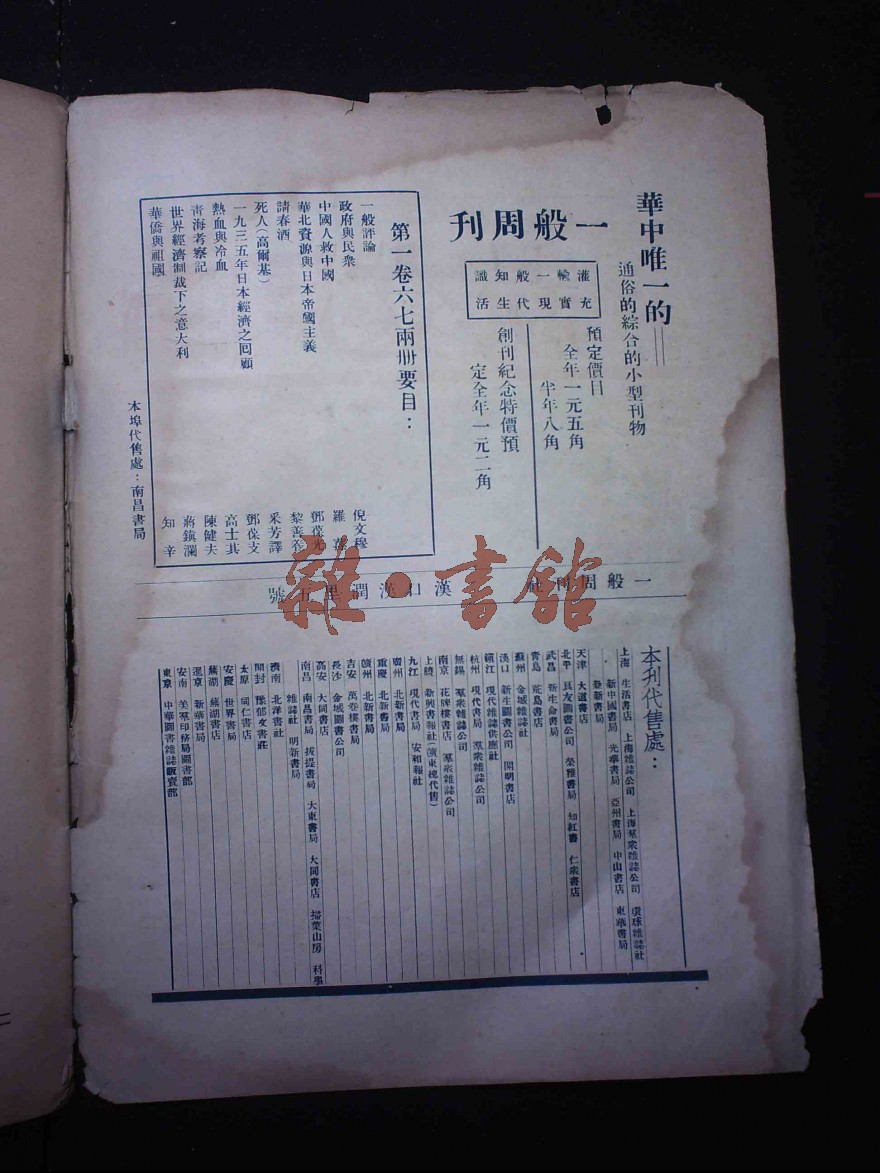 華中唯一的——
通俗的綜合的小型刊物
一般周刊
灌輸一般知識
充實現代生活
預定價目
全年一元五角
半年八角
創刊紀念特價預
定全年一元二角
第一卷六七兩册要目：
一般評論
政府與民衆 倪文穆
中國人救中國 羅
華北資源與日本帝國主義 鄧葆光
請春酒 黎善
死人（高爾基） 采芳譯
一九三五年日本經濟之回顧 鄧葆支
熱血與冷血 高士其
青海考察記 陳健夫
世界經濟制裁下之意大利 蔣鎮瀾
華僑與祖國 知辛
本埠代售處：南昌書局
一般周刊社 漢口漢潤里五號
雜·書館
本刊代售處：
上海 生活書店 上海雜誌公司 上海羣衆雜誌公司 環球雜誌社
新中國書局 光華書局 亞州書局 中山書店 東華書局
天津 大道書店
北平 良友圖書公司 榮雅書局 知紅書 仁衆書店
武昌 新生命書局
青島 荒島書店
蘇州 金城雜誌公司
漢口 新生圖書公司 開明書店
鎮江 現代雜誌供應社
杭州 現代書局 羣衆雜誌公司
無錫 羣衆雜誌公司
南京 花牌樓書店 羣衆雜誌公司
上饒 新興書報社（廣東總代售）
九江 現代書局 安和報社
廣州 北新書局
重慶 北新書局
贛州 北新書局
吉安 萬卷樓書局
長沙 金城圖書公司
高安 大同書店
南昌 南昌書局 拔提書局 大東書局 大同書店 掃葉山房 科學
雜誌社 明新書局
濟南 北洋書社
開封 豫郁文書莊
太原 同仁書店
安慶 世界書局
蕪湖 蕪湖書店
暹京 新華書局
安南 美羣印務局圖書部
東京 中華圖書雜誌販賣部